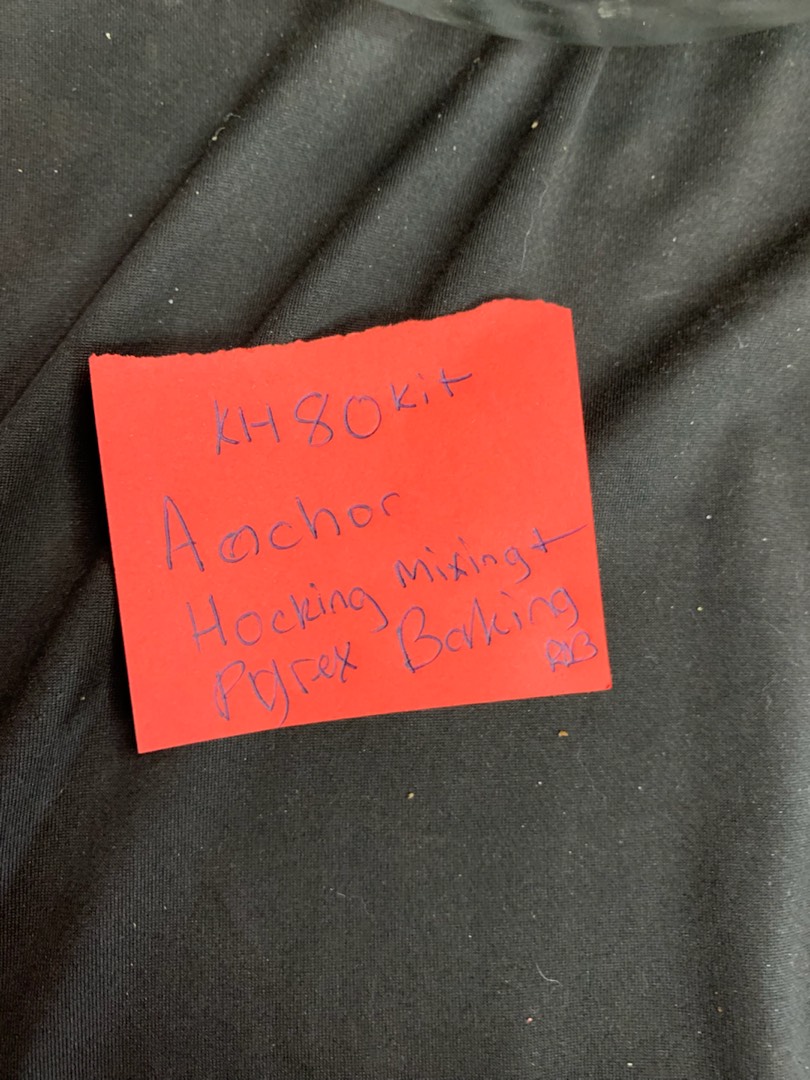 KH80Kit
Anchor
Hocking Mixing +
Pyrex Baking
RB